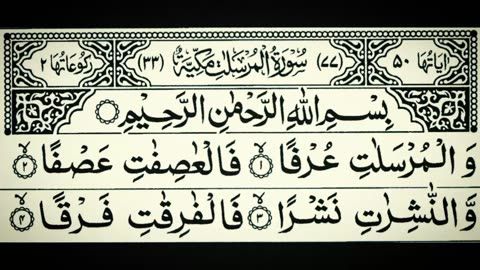 اٰيَاتُهَا ٥٠ (٧٧) سُوْرَةُ الْمُرْسَلٰتِ مَكِّيَّةٌ (٣٣) رُكُوْعَاتُهَا ٢
بِسْمِ اللّٰهِ الرَّحْمٰنِ الرَّحِيْمِ
وَالْمُرْسَلٰتِ عُرْفًا ۙ﴿١﴾ فَالْعٰصِفٰتِ عَصْفًا ۙ﴿٢﴾
وَّالنّٰشِرٰتِ نَشْرًا ۙ﴿٣﴾ فَالْفٰرِقٰتِ فَرْقًا ۙ﴿٤﴾